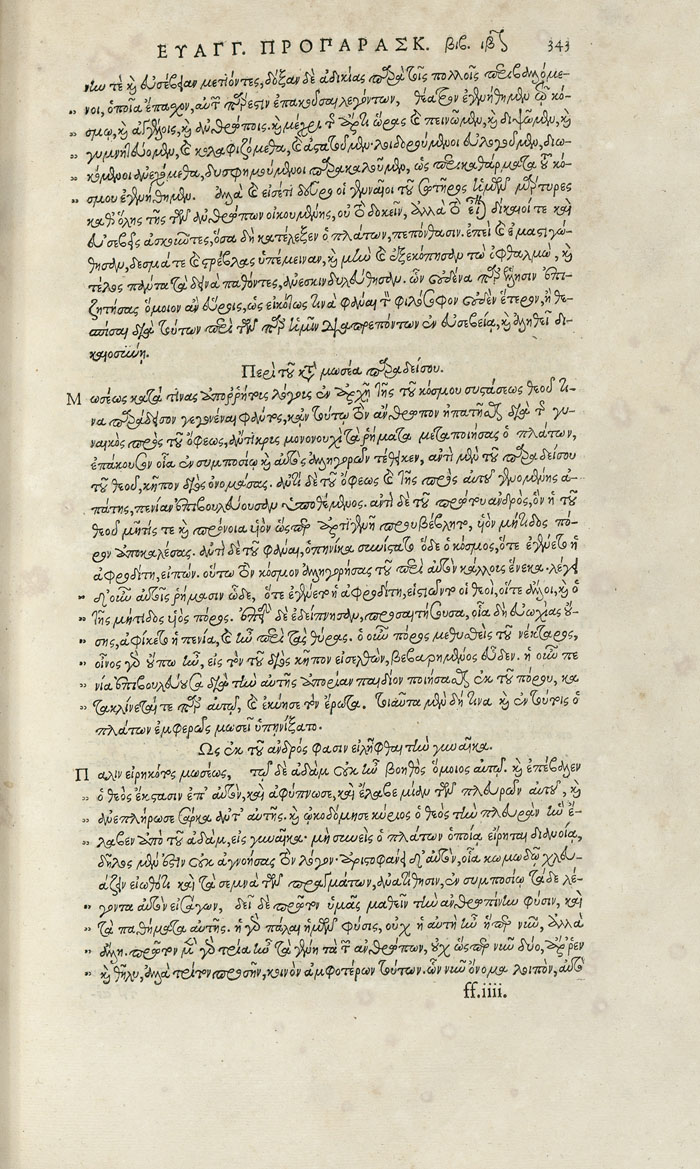 ΕΥΑΓΓ. ΠΡΟΠΑΡΑΣΚ. βιβ. ιβ 343
νην τὲ καὶ εὐσέβειαν μετιόντες, δόξαν δὲ ἀδικίας παρὰ τοῖς πολλοῖς περιβαλλόμε-
νοι, ὁποῖα ἔπαθον, αὐτῶν πάρεστιν ἐπακοῦσαι λεγόντων, θέατρον ἐγενήθημεν τῷ κό-
σμῳ, καὶ ἀγγέλοις, καὶ ἀνθρώποις. καὶ μέχρι τῆς ἄρτι ὥρας καὶ πεινῶμεν, καὶ διψῶμεν, καὶ
γυμνητεύομεν, καὶ κολαφιζόμεθα, καὶ ἀστατοῦμεν. λοιδορούμενοι εὐλογοῦμεν, διω-
κόμενοι ἀνεχόμεθα, δυσφημούμενοι παρακαλοῦμεν, ὡς περικαθάρματα τοῦ κό-
σμου ἐγενήθημεν. ἀλλὰ καὶ εἰσέτι δεῦρο οἱ γενναῖοι τοῦ σωτῆρος ἡμῶν μάρτυρες
καθ' ὅλης τῆς τῶν ἀνθρώπων οἰκουμένης, οὐ τὸ δοκεῖν, ἀλλὰ τὸ εἶναι δίκαιοί τε καὶ
εὐσεβεῖς ἀσκοῦντες, ὅσα δὴ κατέλεξεν ὁ πλάτων, πεπόνθασιν. ἐπεὶ καὶ ἐμαστιγώ-
θησαν, δεσμά τε καὶ στρέβλας ὑπέμειναν, καὶ μὴν καὶ ἐξεκόπησαν τὼ ὀφθαλμώ, καὶ
τέλος πάντα τὰ δεινὰ παθόντες, ἀνεσκινδυλεύθησαν. ὧν οὐδένα παρ' ἕλλησιν ἐπι-
ζητήσας ὅμοιον ἂν εὕροις, ὡς εἰκότως τινὰ φάναι τὸν φιλόσοφον οὐδὲν ἕτερον, ἢ θε-
σπίσαι διὰ τούτων περὶ τῶν παρ' ἡμῖν διαπρεπόντων ἐν εὐσεβείᾳ, καὶ ἀληθεῖ δι-
καιοσύνῃ.
Περὶ τοῦ κατὰ μωσέα παραδείσου.
Μωσέως κατά τινας ἀπορρήτους λόγους ἐν ἀρχῇ τῆς τοῦ κόσμου συστάσεως θεοῦ τι-
να παράδεισον γεγονέναι φάντος, κἀν τούτῳ τὸν ἄνθρωπον ἠπατῆσθαι διὰ τῆς γυ-
ναικὸς πρὸς τοῦ ὄφεως, ἄντικρις μονονουχὶ τὰ ῥήματα μεταποιήσας ὁ πλάτων,
ἐπάκουσον οἷα ἐν συμποσίῳ καὶ αὐτὸς ἀλληγορῶν τέθεικεν, ἀντὶ μὲν τοῦ παραδείσου
τοῦ θεοῦ, κῆπον διὸς ὀνομάσας. ἀντὶ δὲ τοῦ ὄφεως καὶ τῆς πρὸς αὐτοῦ γενομένης ἀ-
πάτης, πενίαν ἐπιβουλεύουσαν ὑποθέμενος. ἀντὶ δὲ τοῦ πρώτου ἀνδρὸς, ὃν ἡ τοῦ
θεοῦ μῆτίς τε καὶ πρόνοια υἱὸν ὥσπερ ἀρτιγενῆ προυβέβλητο, υἱὸν μήτιδος πό-
ρον ἀποκαλέσας. ἀντὶ δὲ τοῦ φάναι, ὁπηνίκα συνίστατο ὅδε ὁ κόσμος, ὅτε ἐγένετο ἡ
ἀφροδίτη, εἰπών. οὕτω τὸν κόσμον ἀλληγορήσας τοῦ περὶ αὐτὸν κάλλους ἕνεκα. λέγει
δ' οὖν αὐτοῖς ῥήμασιν ὧδε, ὅτε ἐγένετο ἡ ἀφροδίτη, εἱστιῶντο οἱ θεοὶ, οἵ τε ἄλλοι, καὶ ὁ
τῆς μήτιδος υἱὸς πόρος. ἐπειδὴ δὲ ἐδείπνησαν, προσαιτήσουσα, οἷα δὴ εὐωχίας οὔ-
σης, ἀφίκετο ἡ πενία, καὶ ἦν περὶ τὰς θύρας. ὁ οὖν πόρος μεθυσθεὶς τοῦ νέκταρος,
οἶνος γὰρ οὔπω ἦν, εἰς τὸν τοῦ διὸς κῆπον εἰσελθὼν, βεβαρημένος εὗδεν. ἡ οὖν πε
νία ἐπιβουλεύουσα διὰ τὴν αὑτῆς ἀπορίαν παιδίον ποιήσασθαι ἐκ τοῦ πόρου, κα
τακλίνεταί τε παρ' αὐτῷ, καὶ ἐκύησε τὸν ἔρωτα. τοιαῦτα μὲν δή τινα καὶ ἐν τούτοις ὁ
πλάτων ἐμφερῶς μωσεῖ ὑπηνίξατο.
Ὡς ἐκ τοῦ ἀνδρός φασιν εἰλῆφθαι τὴν γυναῖκα.
Παλιν εἰρηκότος μωσέως, τῷ δὲ ἀδὰμ οὐκ ἦν βοηθὸς ὅμοιος αὐτῷ. καὶ ἐπέβαλεν
ὁ θεὸς ἔκστασιν ἐπ' αὐτὸν, καὶ ἀφύπνωσε, καὶ ἔλαβε μίαν τῶν πλευρῶν αὐτοῦ, καὶ
ἀνεπλήρωσε σάρκα ἀντ' αὐτῆς. καὶ ᾠκοδόμησε κύριος ὁ θεὸς τὴν πλευρὰν ἣν ἔ-
λαβεν ἀπὸ τοῦ ἀδὰμ, εἰς γυναῖκα. μὴ συνεὶς ὁ πλάτων ὁποίᾳ εἴρηται διανοίᾳ,
δῆλος μέν ἐστιν οὐκ ἀγνοήσας τὸν λόγον. ἀριστοφάνει δ' αὐτὸν, οἷα κωμῳδῷ χλευ-
άζειν εἰωθότι καὶ τὰ σεμνὰ τῶν πραγμάτων, ἀνατίθησιν, ἐν συμποσίῳ τάδε λέ-
γοντα αὐτὸν εἰσάγων, δεῖ δὲ πρῶτον ὑμᾶς μαθεῖν τὴν ἀνθρωπίνην φύσιν, καὶ
τὰ παθήματα αὐτῆς. ἡ γὰρ πάλαι ἡμῶν φύσις, οὐχ ἡ αὐτὴ ἦν ἥπερ νῦν, ἀλλὰ
ἄλλη. πρῶτον μὲν γὰρ τρία ἦν τὰ γένη τὰ τῶν ἀνθρώπων, οὐχ ὥσπερ νῦν δύο, ἄρρεν
καὶ θῆλυ, ἀλλὰ τρίτον προσῆν, κοινὸν ἀμφοτέρων τούτων. ὧν νῦν ὄνομα λοιπὸν, αὐτὸ
ff.iiii.